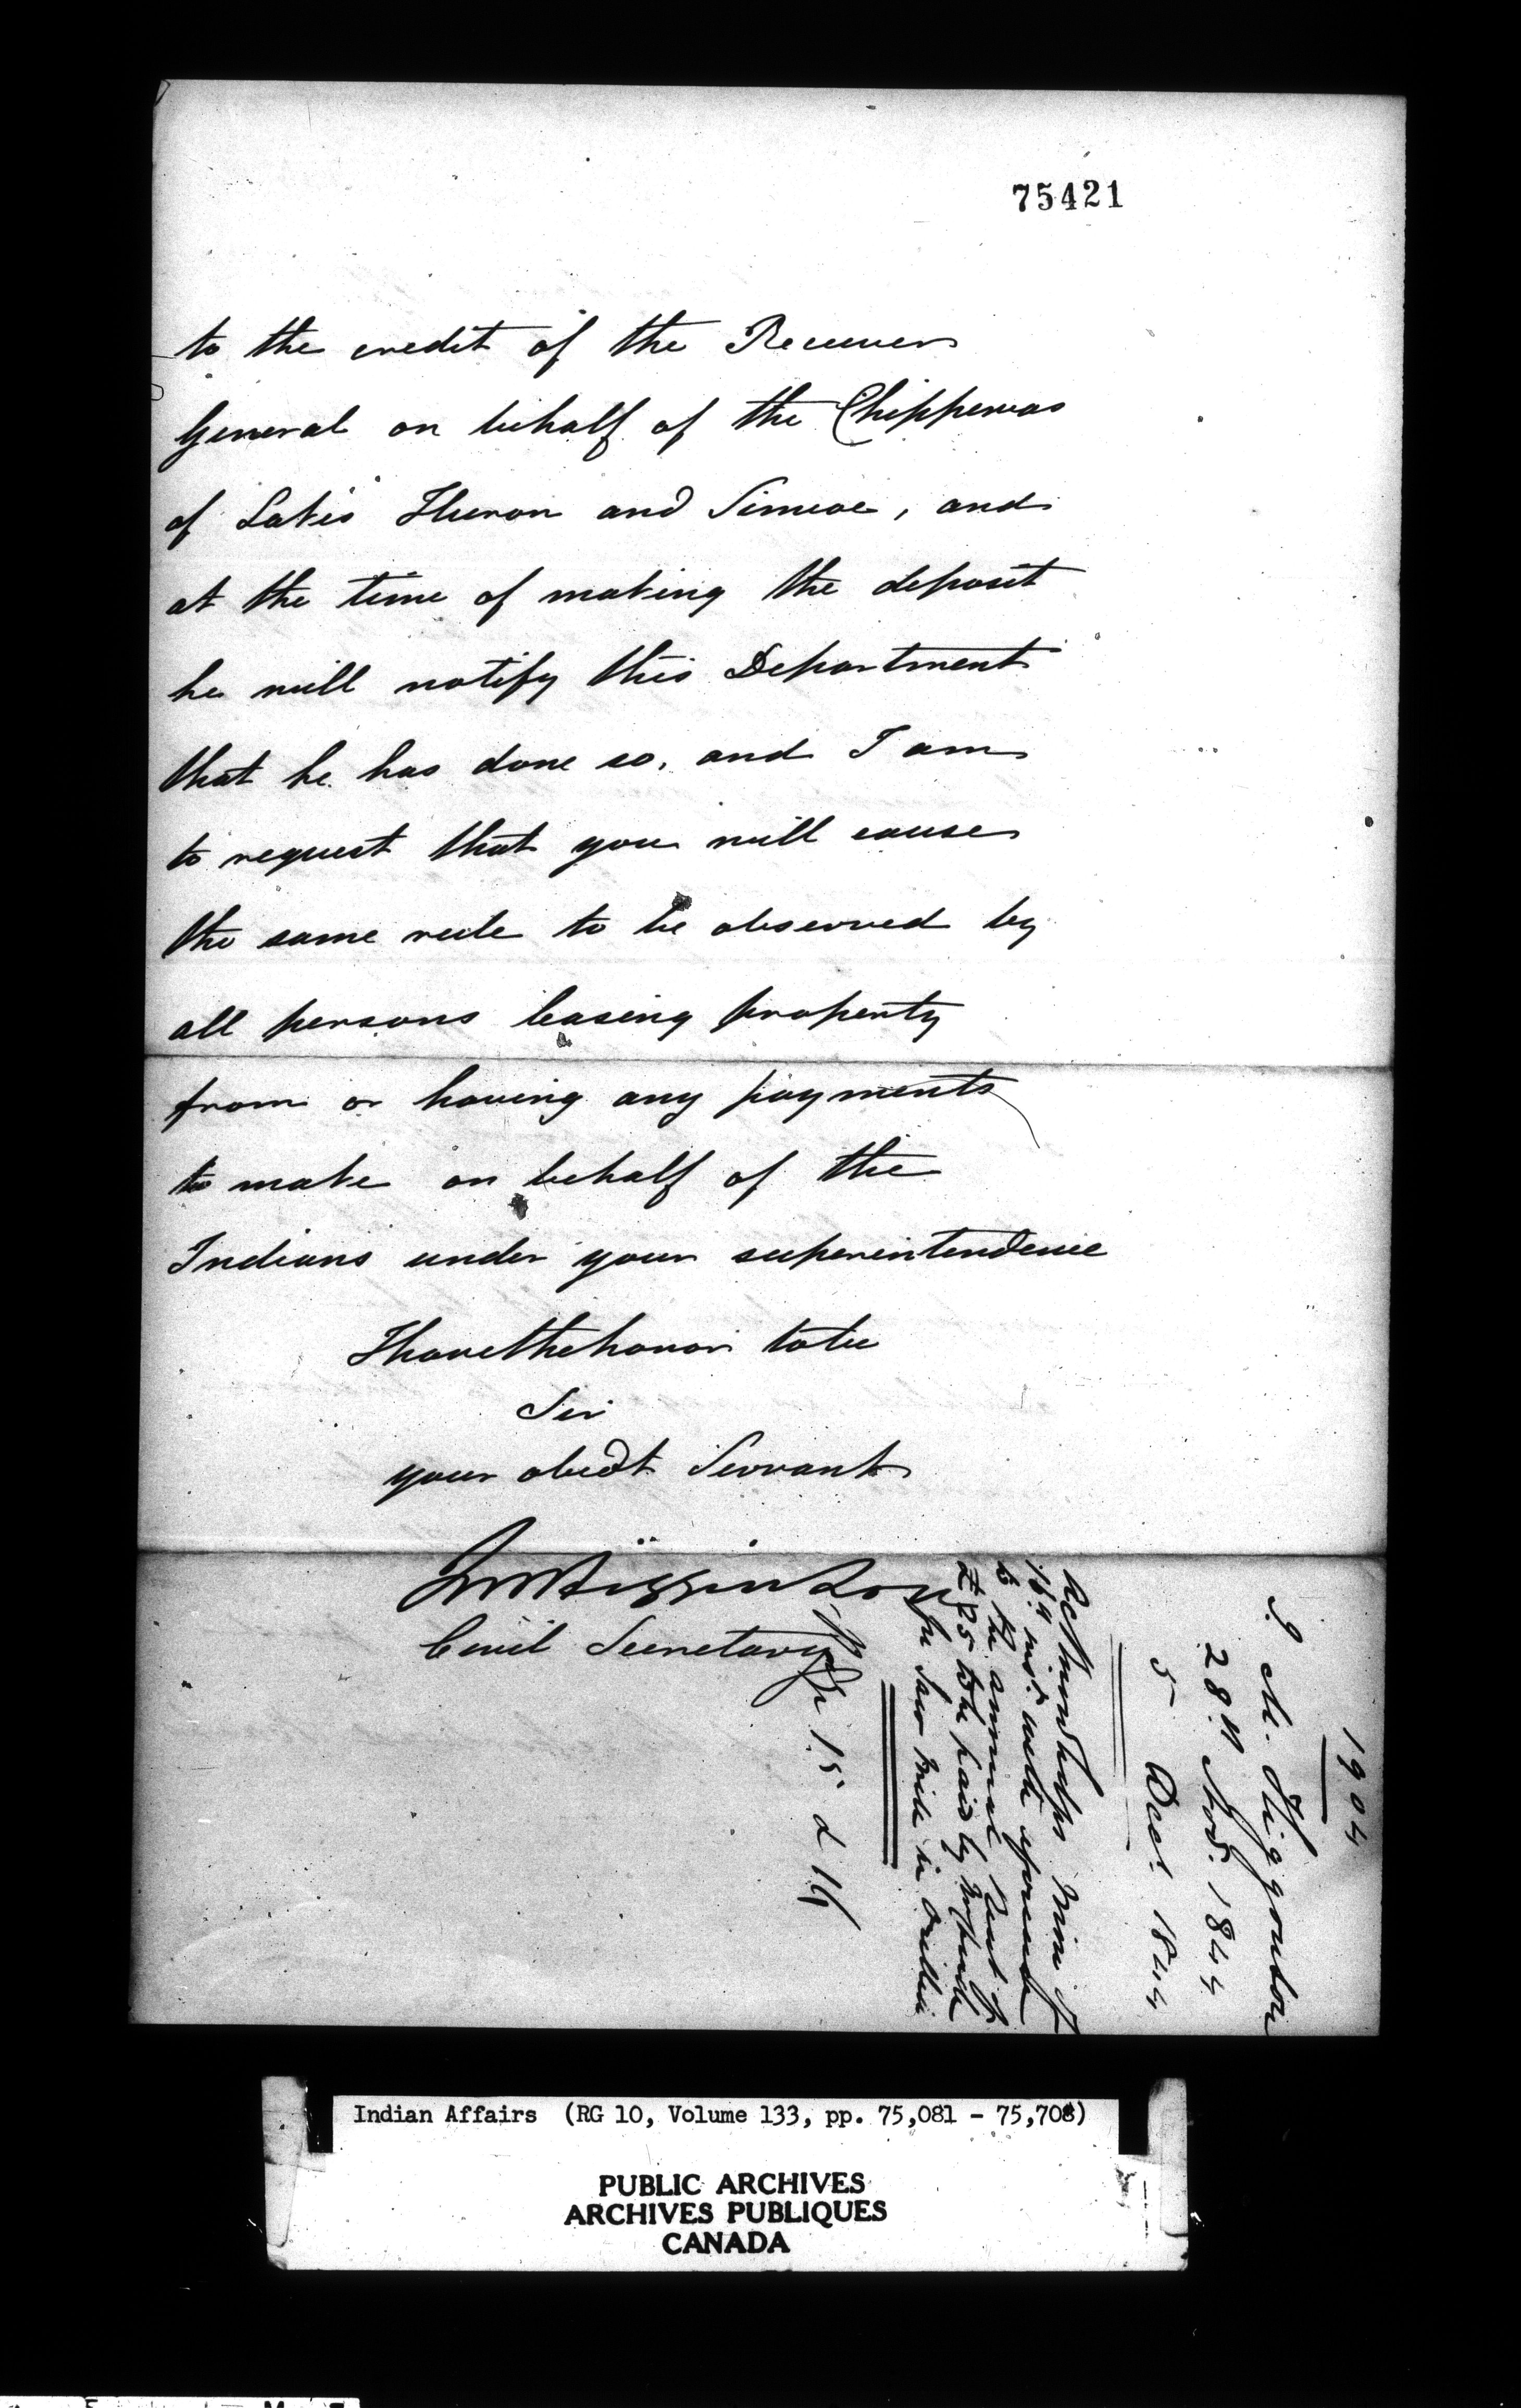 75421
to the credit of the Receiver
General on behalf of the Chippewas
of Lakes Huron and Simcoe, and
at the time of making the deposit
he will notify this Department
that he has done so, and I am
to request that you will cause
the same rule to be observed by
all persons leasing property
from or having any payments
to make on behalf of the
Indians under your superintendence
I have the honor to be
Sir
your obedt Servant
J M Higginson
Civil Secretary
1904
J. M. Higginson
28th Novr. 1844
5 Decr. 1844
of
16th inst. with reference
to the annual Rent of
£25 to be paid by
for Saw Mill in Orillia
15 & 16
Indian Affairs (RG 10, Volume 133, pp. 75,081 - 75,708)
PUBLIC ARCHIVES
ARCHIVES PUBLIQUES
CANADA